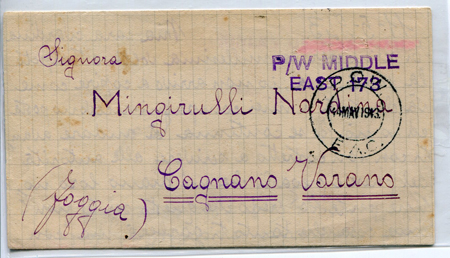 Signora
P/W MIDDLE
EAST 173
Mingirulli Nardina
MAY 194
E.A.C.
Cagnano Varano
(Foggia)